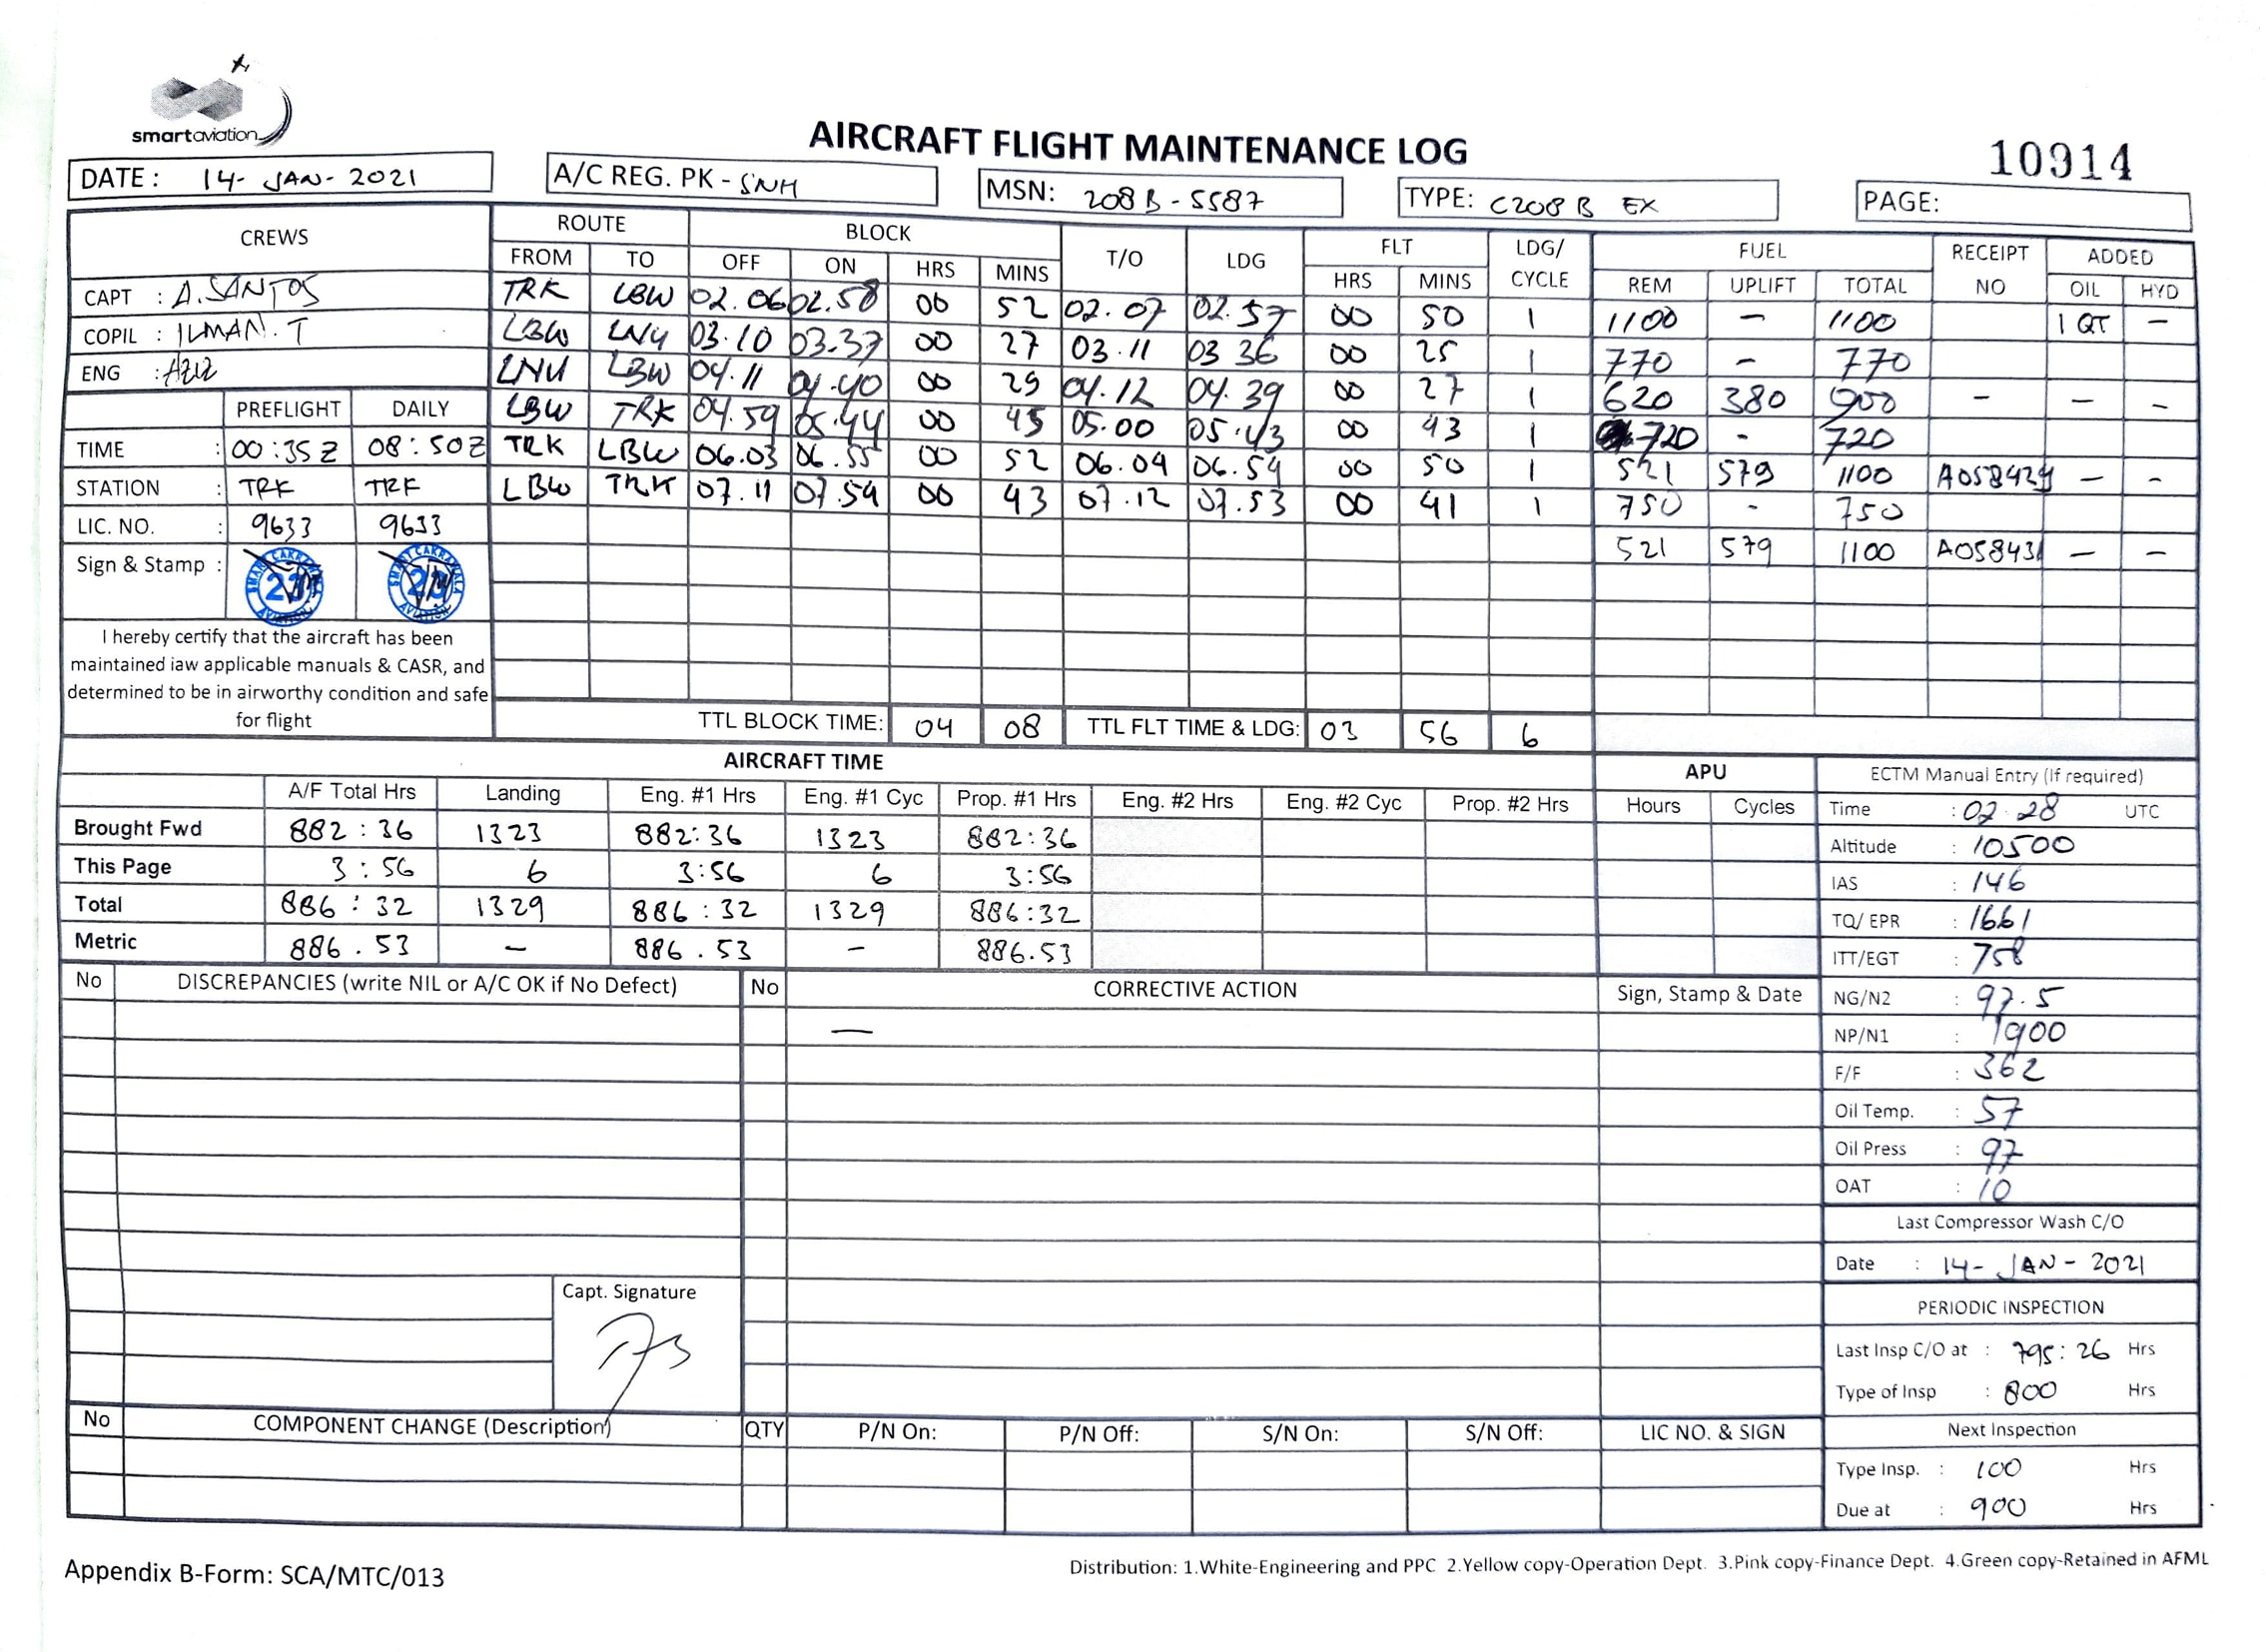 smart aviation
AIRCRAFT FLIGHT MAINTENANCE LOG
10914
DATE : 14- JAN- 2021
A/C REG. PK - SNH
MSN: 208B - 5587
TYPE: C208 B EX
PAGE:
CREWS ROUTE BLOCK T/O LDG FLT LDG/ CYCLE FUEL RECEIPT NO ADDED
FROM TO OFF ON HRS MINS HRS MINS REM UPLIFT TOTAL OIL HYD
CAPT : A. SANTOS
COPIL : ILMAN. T
ENG : AZIZ
TRK LBW 02.06 02.58 00 52 02.07 02.57 00 50 1 1100 - 1100 1 QT -
LBW LNU 03.10 03.37 00 27 03.11 03 36 00 25 1 770 - 770
LNU LBW 04.11 04.40 00 29 04.12 04.39 00 27 1 620 380 900 - - -
LBW TRK 04.59 05.44 00 45 05.00 05.43 00 43 1 720 - 720
TRK LBW 06.03 06.55 00 52 06.04 06.54 00 50 1 521 579 1100 A058424 - -
LBW TRK 07.11 07.54 00 43 07.12 07.53 00 41 1 750 - 750
521 579 1100 A058431 - -
PREFLIGHT DAILY
TIME : 00:35Z 08:50Z
STATION : TRK TRK
LIC. NO. : 9633 9633
Sign & Stamp :
I hereby certify that the aircraft has been
maintained iaw applicable manuals & CASR, and
determined to be in airworthy condition and safe
for flight
TTL BLOCK TIME: 04 08 TTL FLT TIME & LDG: 03 56 6
AIRCRAFT TIME APU
A/F Total Hrs Landing Eng. #1 Hrs Eng. #1 Cyc Prop. #1 Hrs Eng. #2 Hrs Eng. #2 Cyc Prop. #2 Hrs Hours Cycles
Brought Fwd 882:36 1323 882:36 1323 882:36
This Page 3:56 6 3:56 6 3:56
Total 886:32 1329 886:32 1329 886:32
Metric 886.53 - 886.53 - 886.53
ECTM Manual Entry (If required)
Time : 02 28 UTC
Altitude : 10500
IAS : 146
TQ/ EPR : 1661
ITT/EGT : 758
NG/N2 : 97.5
NP/N1 : 1900
F/F : 362
Oil Temp. : 57
Oil Press : 97
OAT : 10
Last Compressor Wash C/O
Date : 14- JAN - 2021
PERIODIC INSPECTION
Last Insp C/O at : 795:26 Hrs
Type of Insp : 800 Hrs
Next Inspection
Type Insp. : 100 Hrs
Due at : 900 Hrs
No DISCREPANCIES (write NIL or A/C OK if No Defect) No CORRECTIVE ACTION Sign, Stamp & Date
—
Capt. Signature
No COMPONENT CHANGE (Description) QTY P/N On: P/N Off: S/N On: S/N Off: LIC NO. & SIGN
Appendix B-Form: SCA/MTC/013
Distribution: 1.White-Engineering and PPC 2.Yellow copy-Operation Dept. 3.Pink copy-Finance Dept. 4.Green copy-Retained in AFML